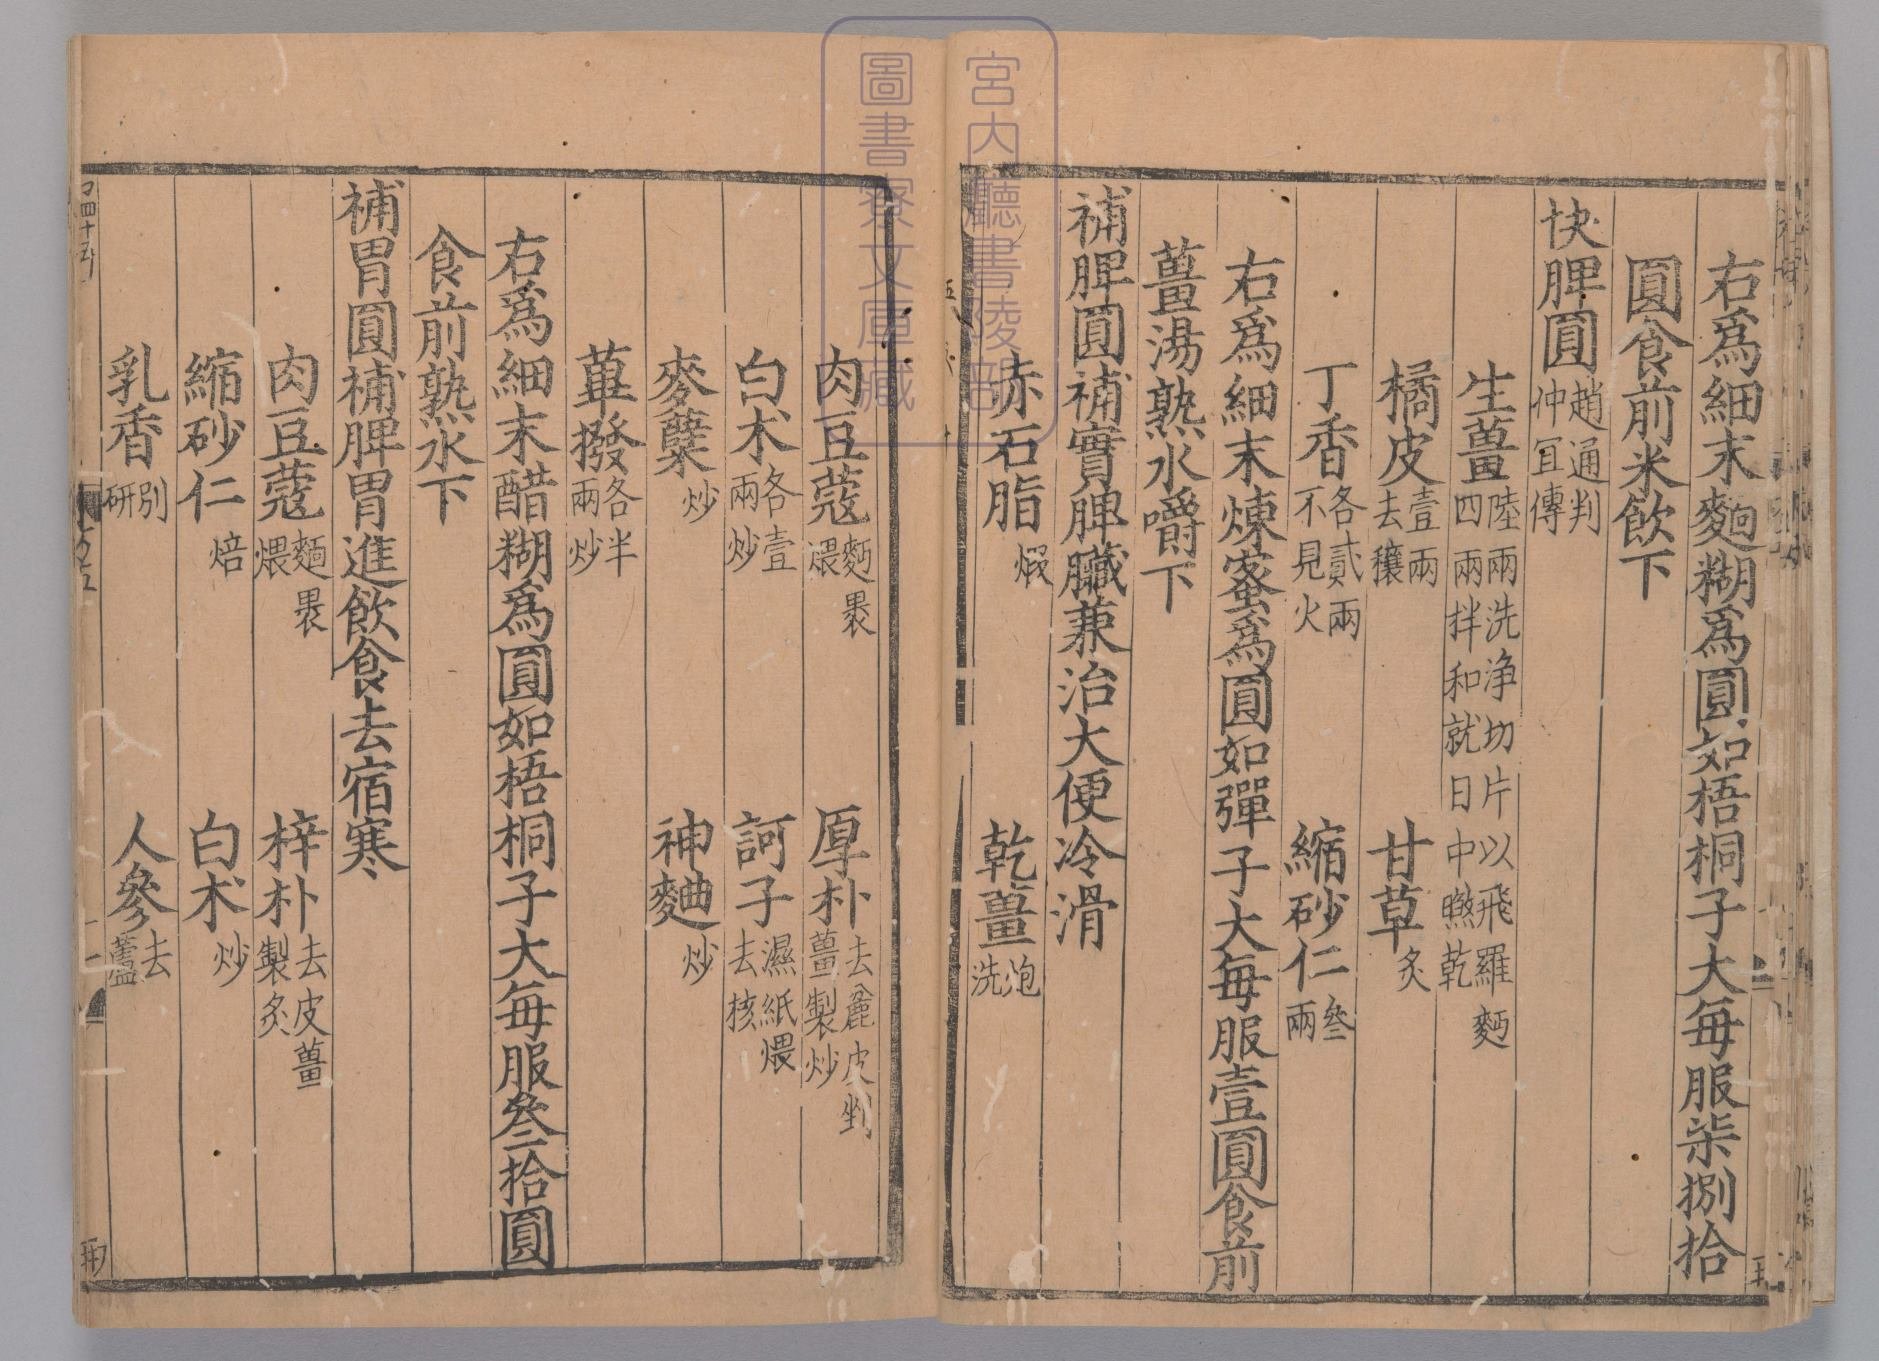 右爲細末麪糊爲圓如梧桐子大每服柒捌拾
圓食前米飲下
快脾圓趙通判仲冝傳
生薑陸兩洗浄切片以飛羅麪四兩拌和就日中㬠乾
橘皮壹兩去穰 甘草炙
丁香各貳兩不見火 縮砂仁叁兩
右爲細末煉蜜爲圓如彈子大每服壹圓食前
薑湯熟水嚼下
補脾圓補實脾臟兼治大便冷滑
赤石脂煅 乾薑炮洗
肉豆蔻麪裹煨 厚朴去麄皮剉薑製炒
白朮各壹兩炒 訶子濕紙煨去核
麥糵炒 神麯炒
蓽撥各半兩炒
右爲細末醋糊爲圓如梧桐子大每服叁拾圓
食前熟水下
補胃圓補脾胃進飲食去宿寒
肉豆蔻麵裹煨 梓朴去皮薑製炙
縮砂仁焙 白朮炒
乳香別研 人參去蘆
宮内廳書陵部
圖書寮文庫藏